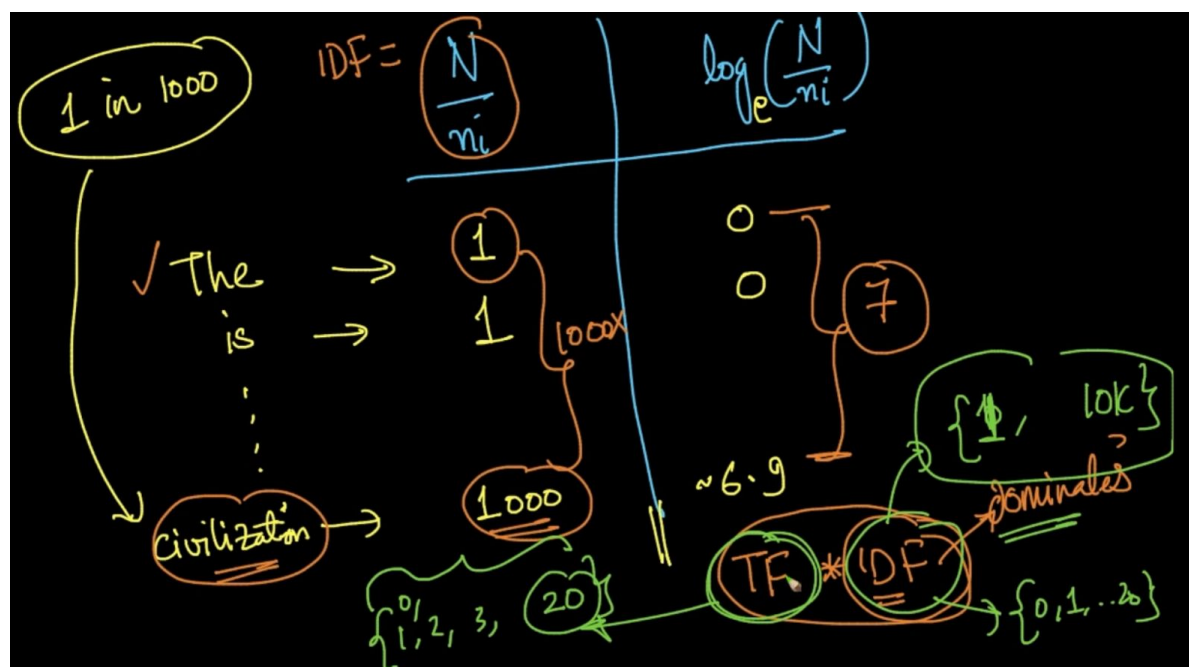 1 in 1000
IDF = N/ni
log e (N/ni)
✓ The → 1 0
is → 1 0
1000x
7
{1, 10K}
civilization → 1000 ~6.9
dominates
TF * IDF
{0, 1, 2, 3, 20}
{0, 1, ..20}